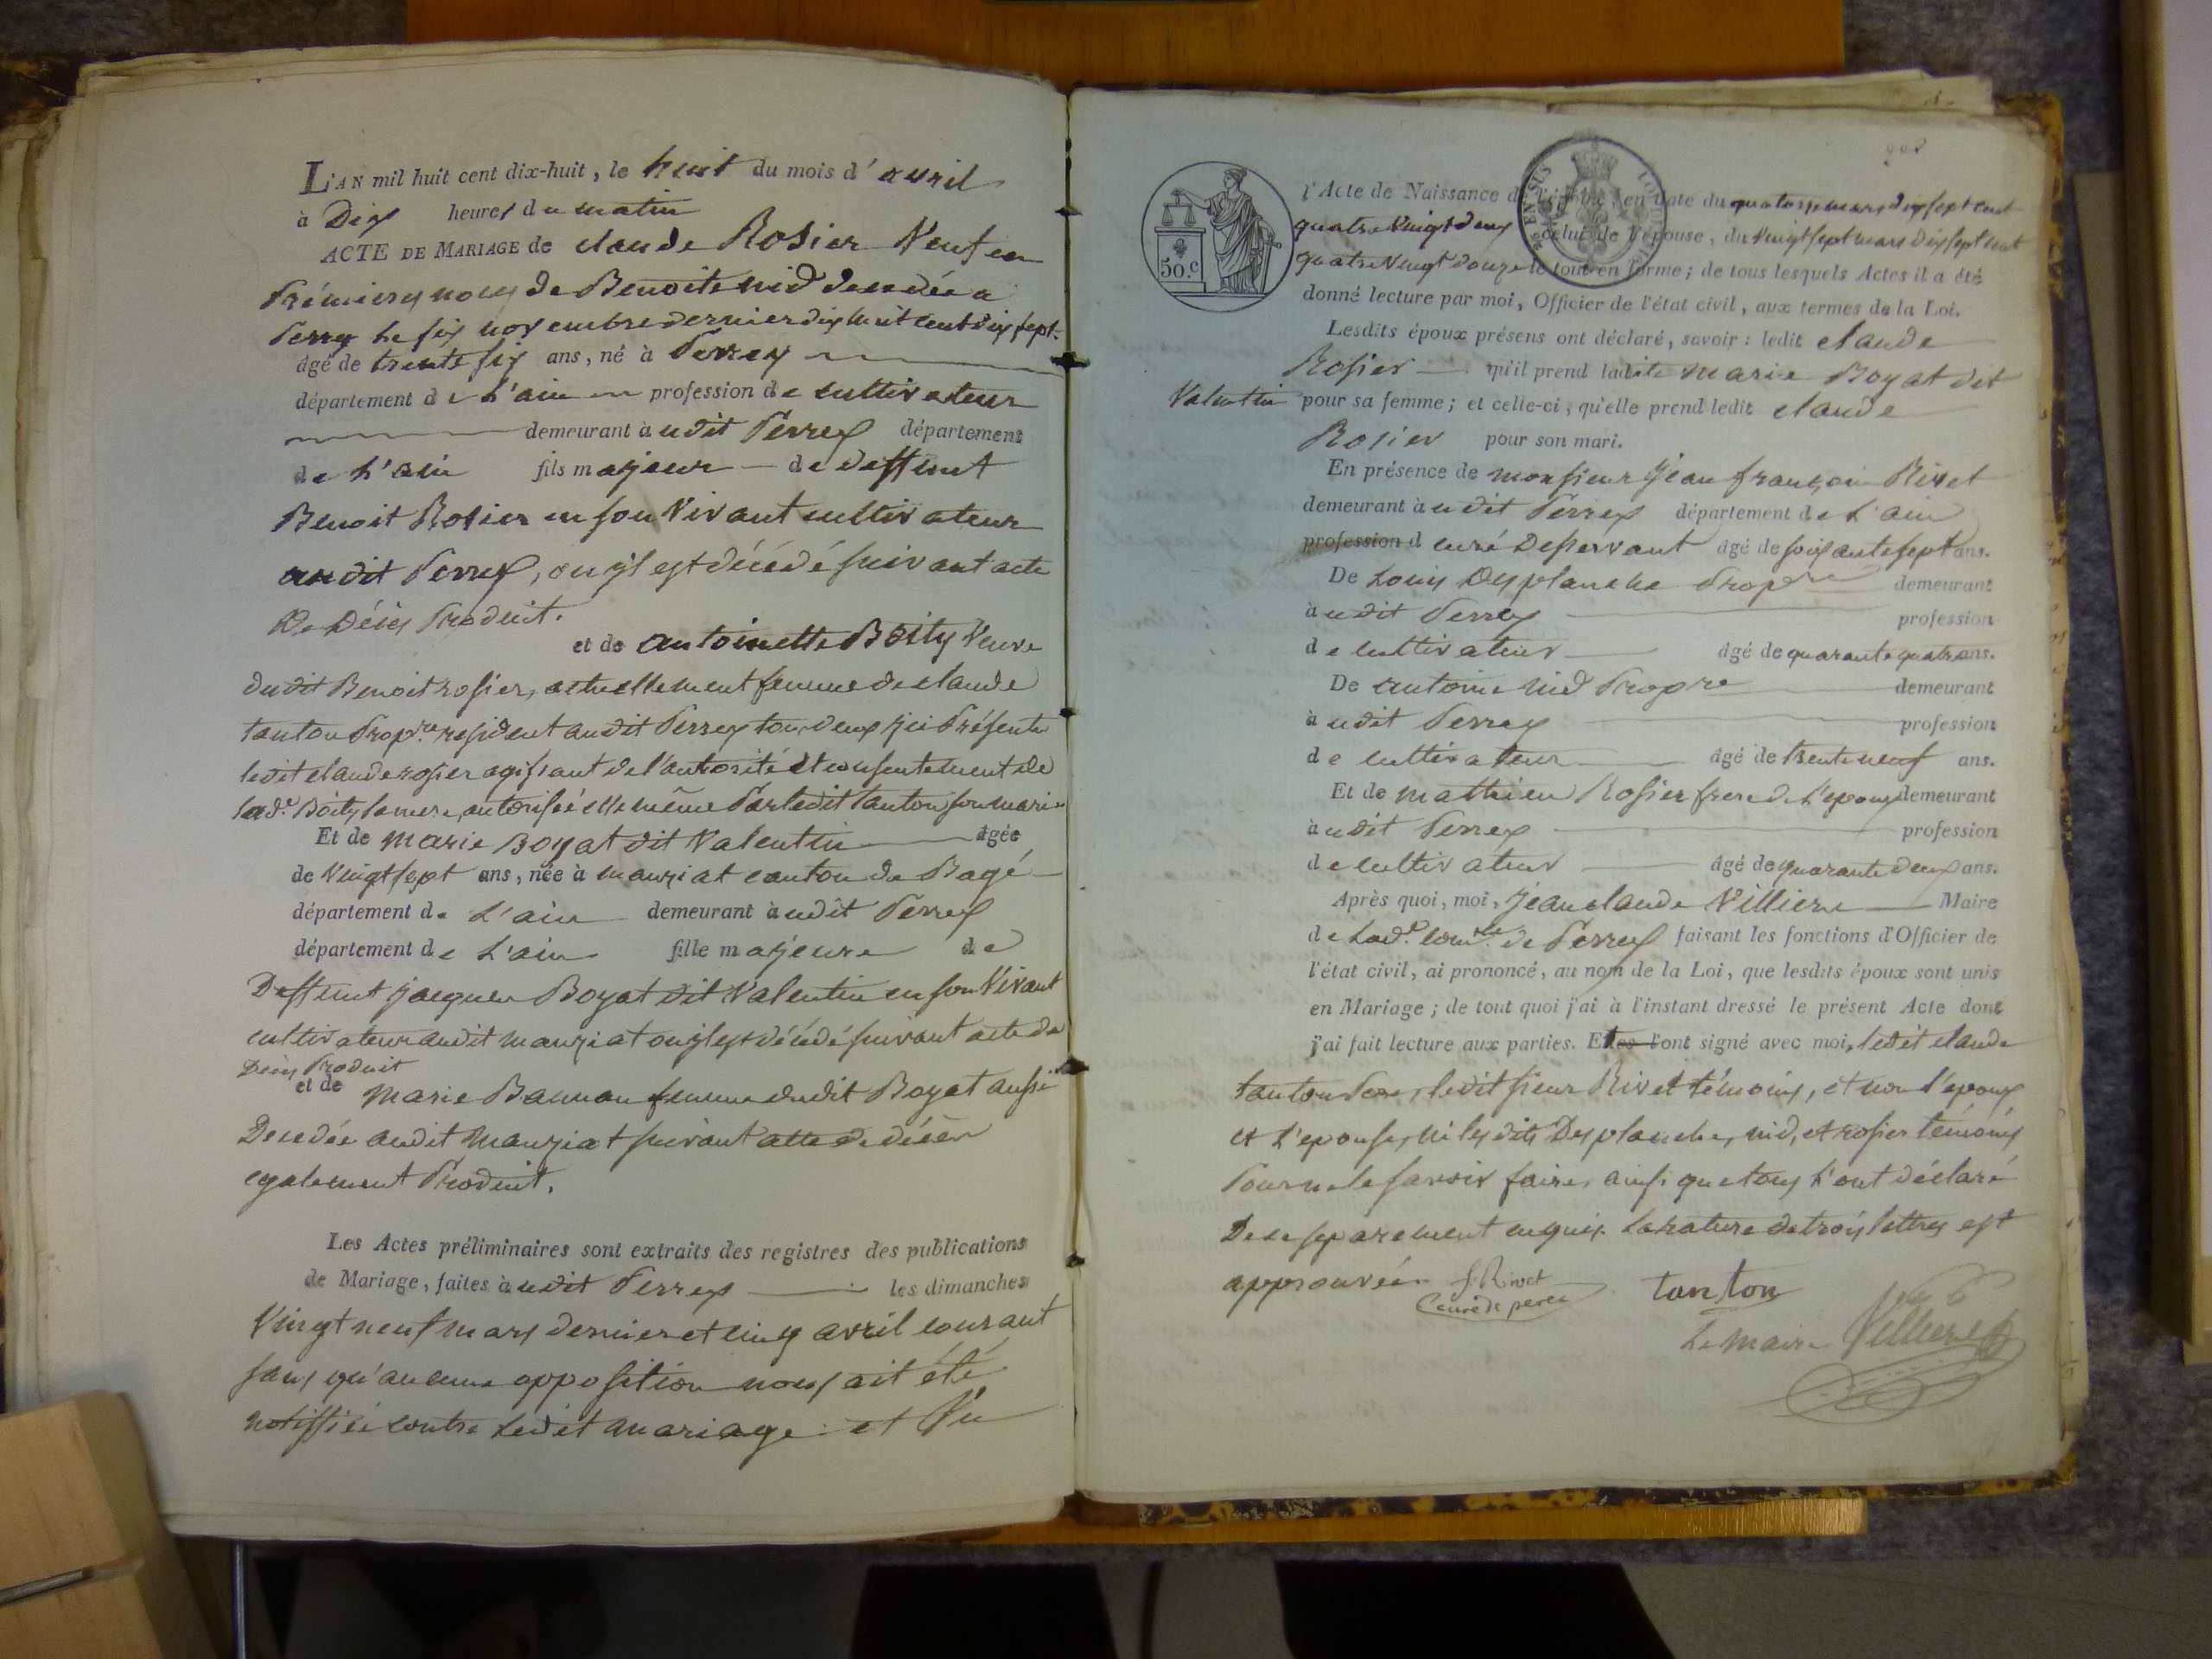 L'AN mil huit cent dix-huit, le huit du mois d'avril
à Dix heures du matin
ACTE DE MARIAGE de claude Rosier Veuf en
Prémieres noces de Benoite nid decedée a
Perrex le six novembre dernier dix huit cent dix sept.
âgé de trente six ans, né à Perrex
département de L'ain profession de cultivateur
demeurant audit Perrex département
de L'ain fils majeur de deffunt
Benoit Rosier en son Vivant cultivateur
audit Perrex, ou il est décédé suivant acte
De Décès Produit.
et de antoinette Boity Veuve
dudit Benoit rosier, actuellement femme de claude
tanton Prop.re resident audit Perrex tous deux ici Présents
ledit claude rosier agissant de l'autorité et consentement de
lad.e Boity sa mere, autorisée elle même Par ledit tanton son mari
Et de marie Boyat dit Valentin âgée
de Vingt sept ans, née à manziat canton de Bagé
département de L'ain demeurant audit Perrex
département de L'ain fille majeure de
Deffunt jacques Boyat dit Valentin en son Vivant
cultivateur audit manziat ou il est décédé suivant acte de
Décès Produit
et de marie Bannan femme dudit Boyat aussi
Decedée audit Manziat suivant acte de décès
egalement Produit.
Les Actes préliminaires sont extraits des registres des publications
de Mariage, faites audit Perrex les dimanches
Vingt neuf mars dernier et cinq avril courant
sans qu'aucune opposition nous ait été
notiffiée contre ledit mariage et Vu
50.c
l'Acte de Naissance de l'époux, en date du quatorze mars dix sept cent
quatre Vingt deux celui de l'épouse, du Vingt sept mars dix sept cent
quatre Vingt douze le tout en forme; de tous lesquels Actes il a été
donné lecture par moi, Officier de l'état civil, aux termes de la Loi.
Lesdits époux présens ont déclaré, savoir: ledit claude
Rosier qu'il prend ladite marie Boyat dit
Valentin pour sa femme; et celle-ci, qu'elle prend ledit claude
Rosier pour son mari.
En présence de monsieur jean françois Rivet
demeurant audit Perrex département de L'ain
profession d curé Desservant âgé de soixante sept ans.
De Louis Desplanche Prop.re demeurant
audit Perrex profession
de cultivateur âgé de quarante quatre ans.
De antoine nid Propre demeurant
audit Perrex profession
de cultivateur âgé de trente neuf ans.
Et de mathieu Rosier frere de L'epoux demeurant
audit Perrex profession
de cultivateur âgé de quarante deux ans.
Après quoi, moi, jean claude Villiere Maire
de Lad.e com.ne de Perrex faisant les fonctions d'Officier de
l'état civil, ai prononcé, au nom de la Loi, que lesdits époux sont unis
en Mariage; de tout quoi j'ai à l'instant dressé le présent Acte dont
j'ai fait lecture aux parties. Et l'ont signé avec moi, ledit claude
tanton Pere, ledit sieur Rivet témoins, et non l'epoux
et L'epouse, ni lesdits Desplanche, nid, et rosier témoins
Pour ne le savoir faire, ainsi que tous L'ont déclaré
De ce separement enquis. La rature de trois lettres est
approuvée. f. Rivet tanton
Curé de perex
Le maire Villiere